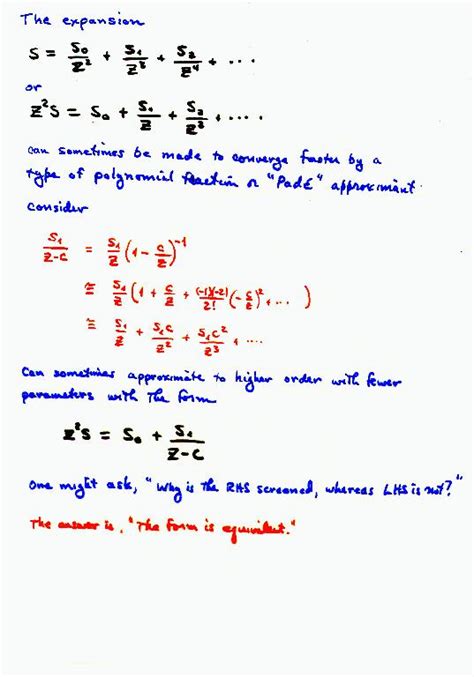 The expansion
S = S₀/Z² + S₁/Z³ + S₂/Z⁴ + ....
or
Z²S = S₀ + S₁/Z + S₂/Z² + ....
can sometimes be made to converge faster by a
type of polynomial fraction or "Padé" approximant.
Consider
S₁/(Z-C) = S₁/Z (1 - C/Z)⁻¹
≅ S₁/Z (1 + C/Z + (-1)(-2)/2! (-C/Z)², ... )
≅ S₁/Z + S₁C/Z² + S₁C²/Z³ + ....
Can sometimes approximate to higher order with fewer
parameters with the form
Z²S = S₀ + S₁/(Z-C)
One might ask, "Why is the RHS screened, whereas LHS is not?"
The answer is, "The form is equivalent."